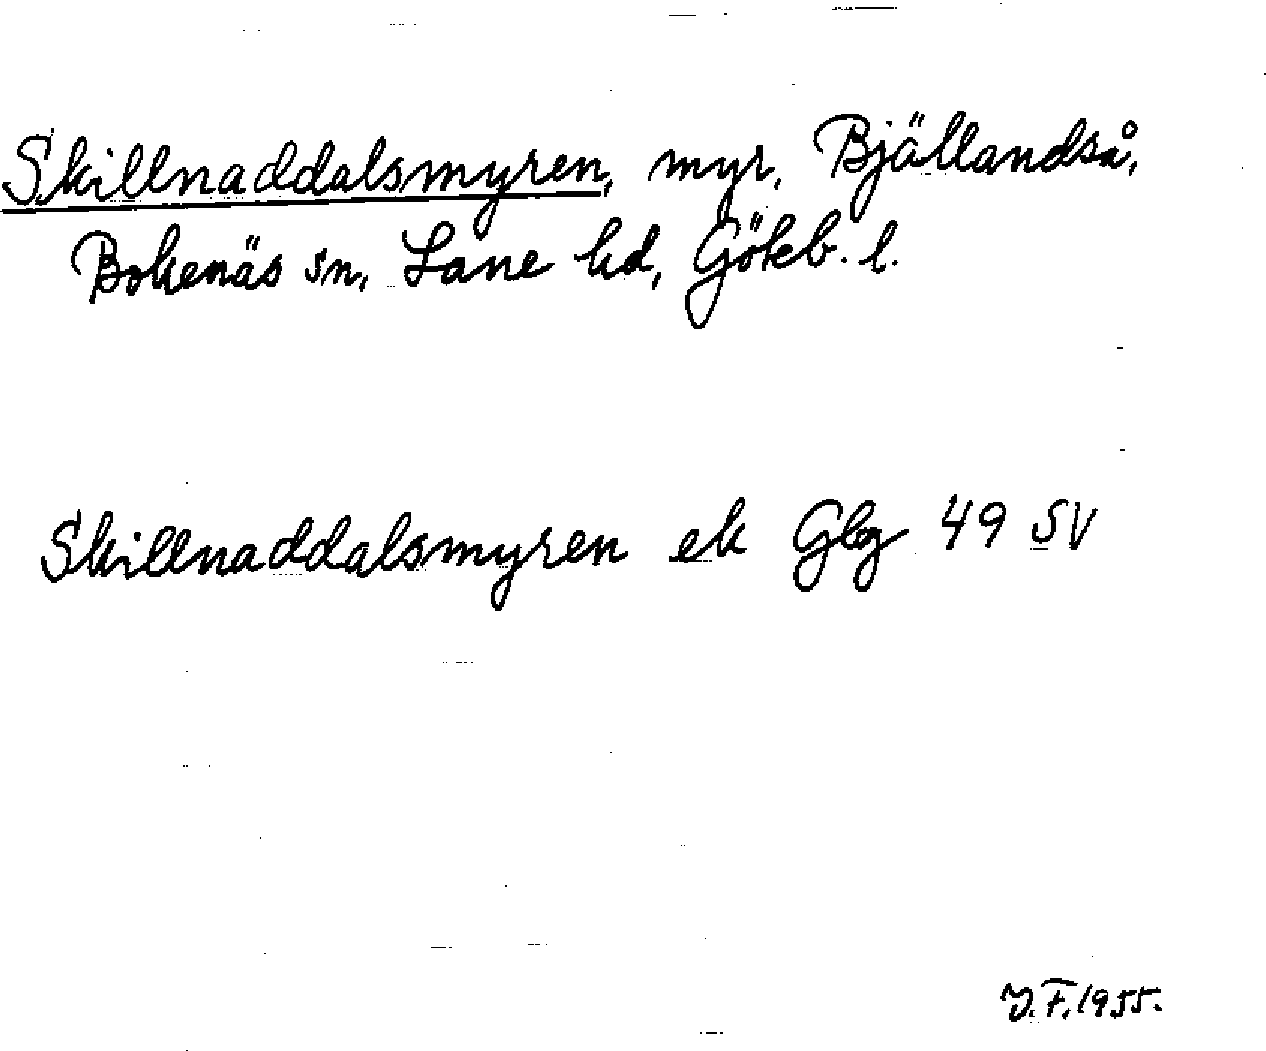 Skillnaddalsmyren, myr, Bjällandså,
Bokenäs sn, Lane hd, Göteb. l.
Skillnaddalsmyren ek Gbg 49 SV
Y.F. 1955.